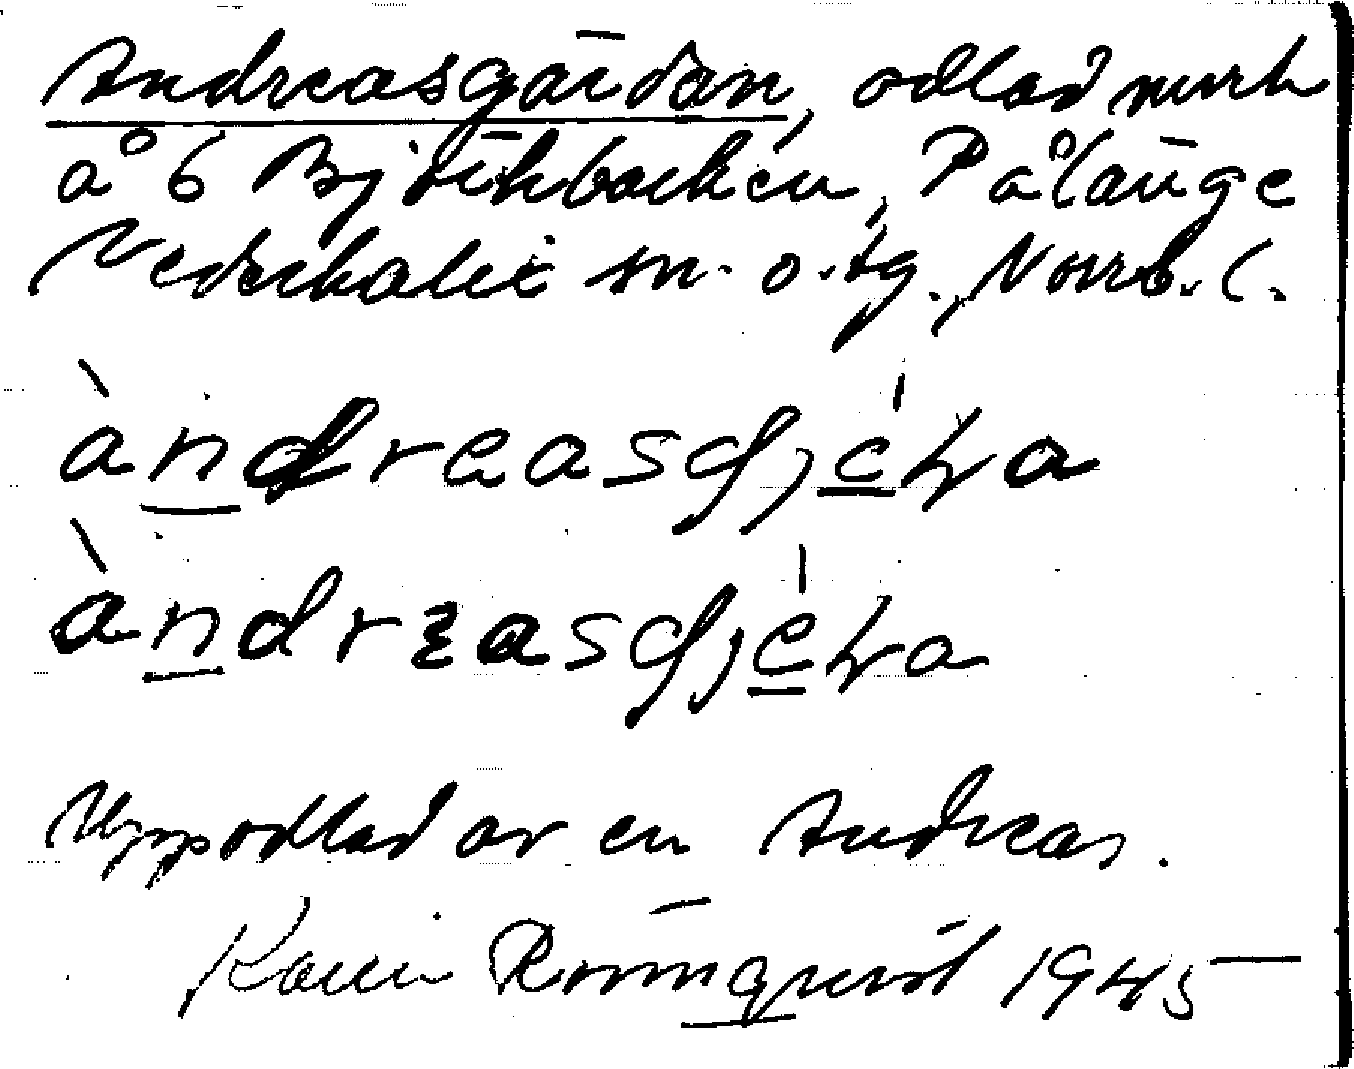 Andreasgärdan, odlad mark
å 6 Björkbacken, Pålänge
Nederkalix sn. o. tg., Norrb. l.
àndreasdjéḷa
àndrɛasdjéḷa
Uppodlad av en Andreas.
Karin Rönnqvist 1945